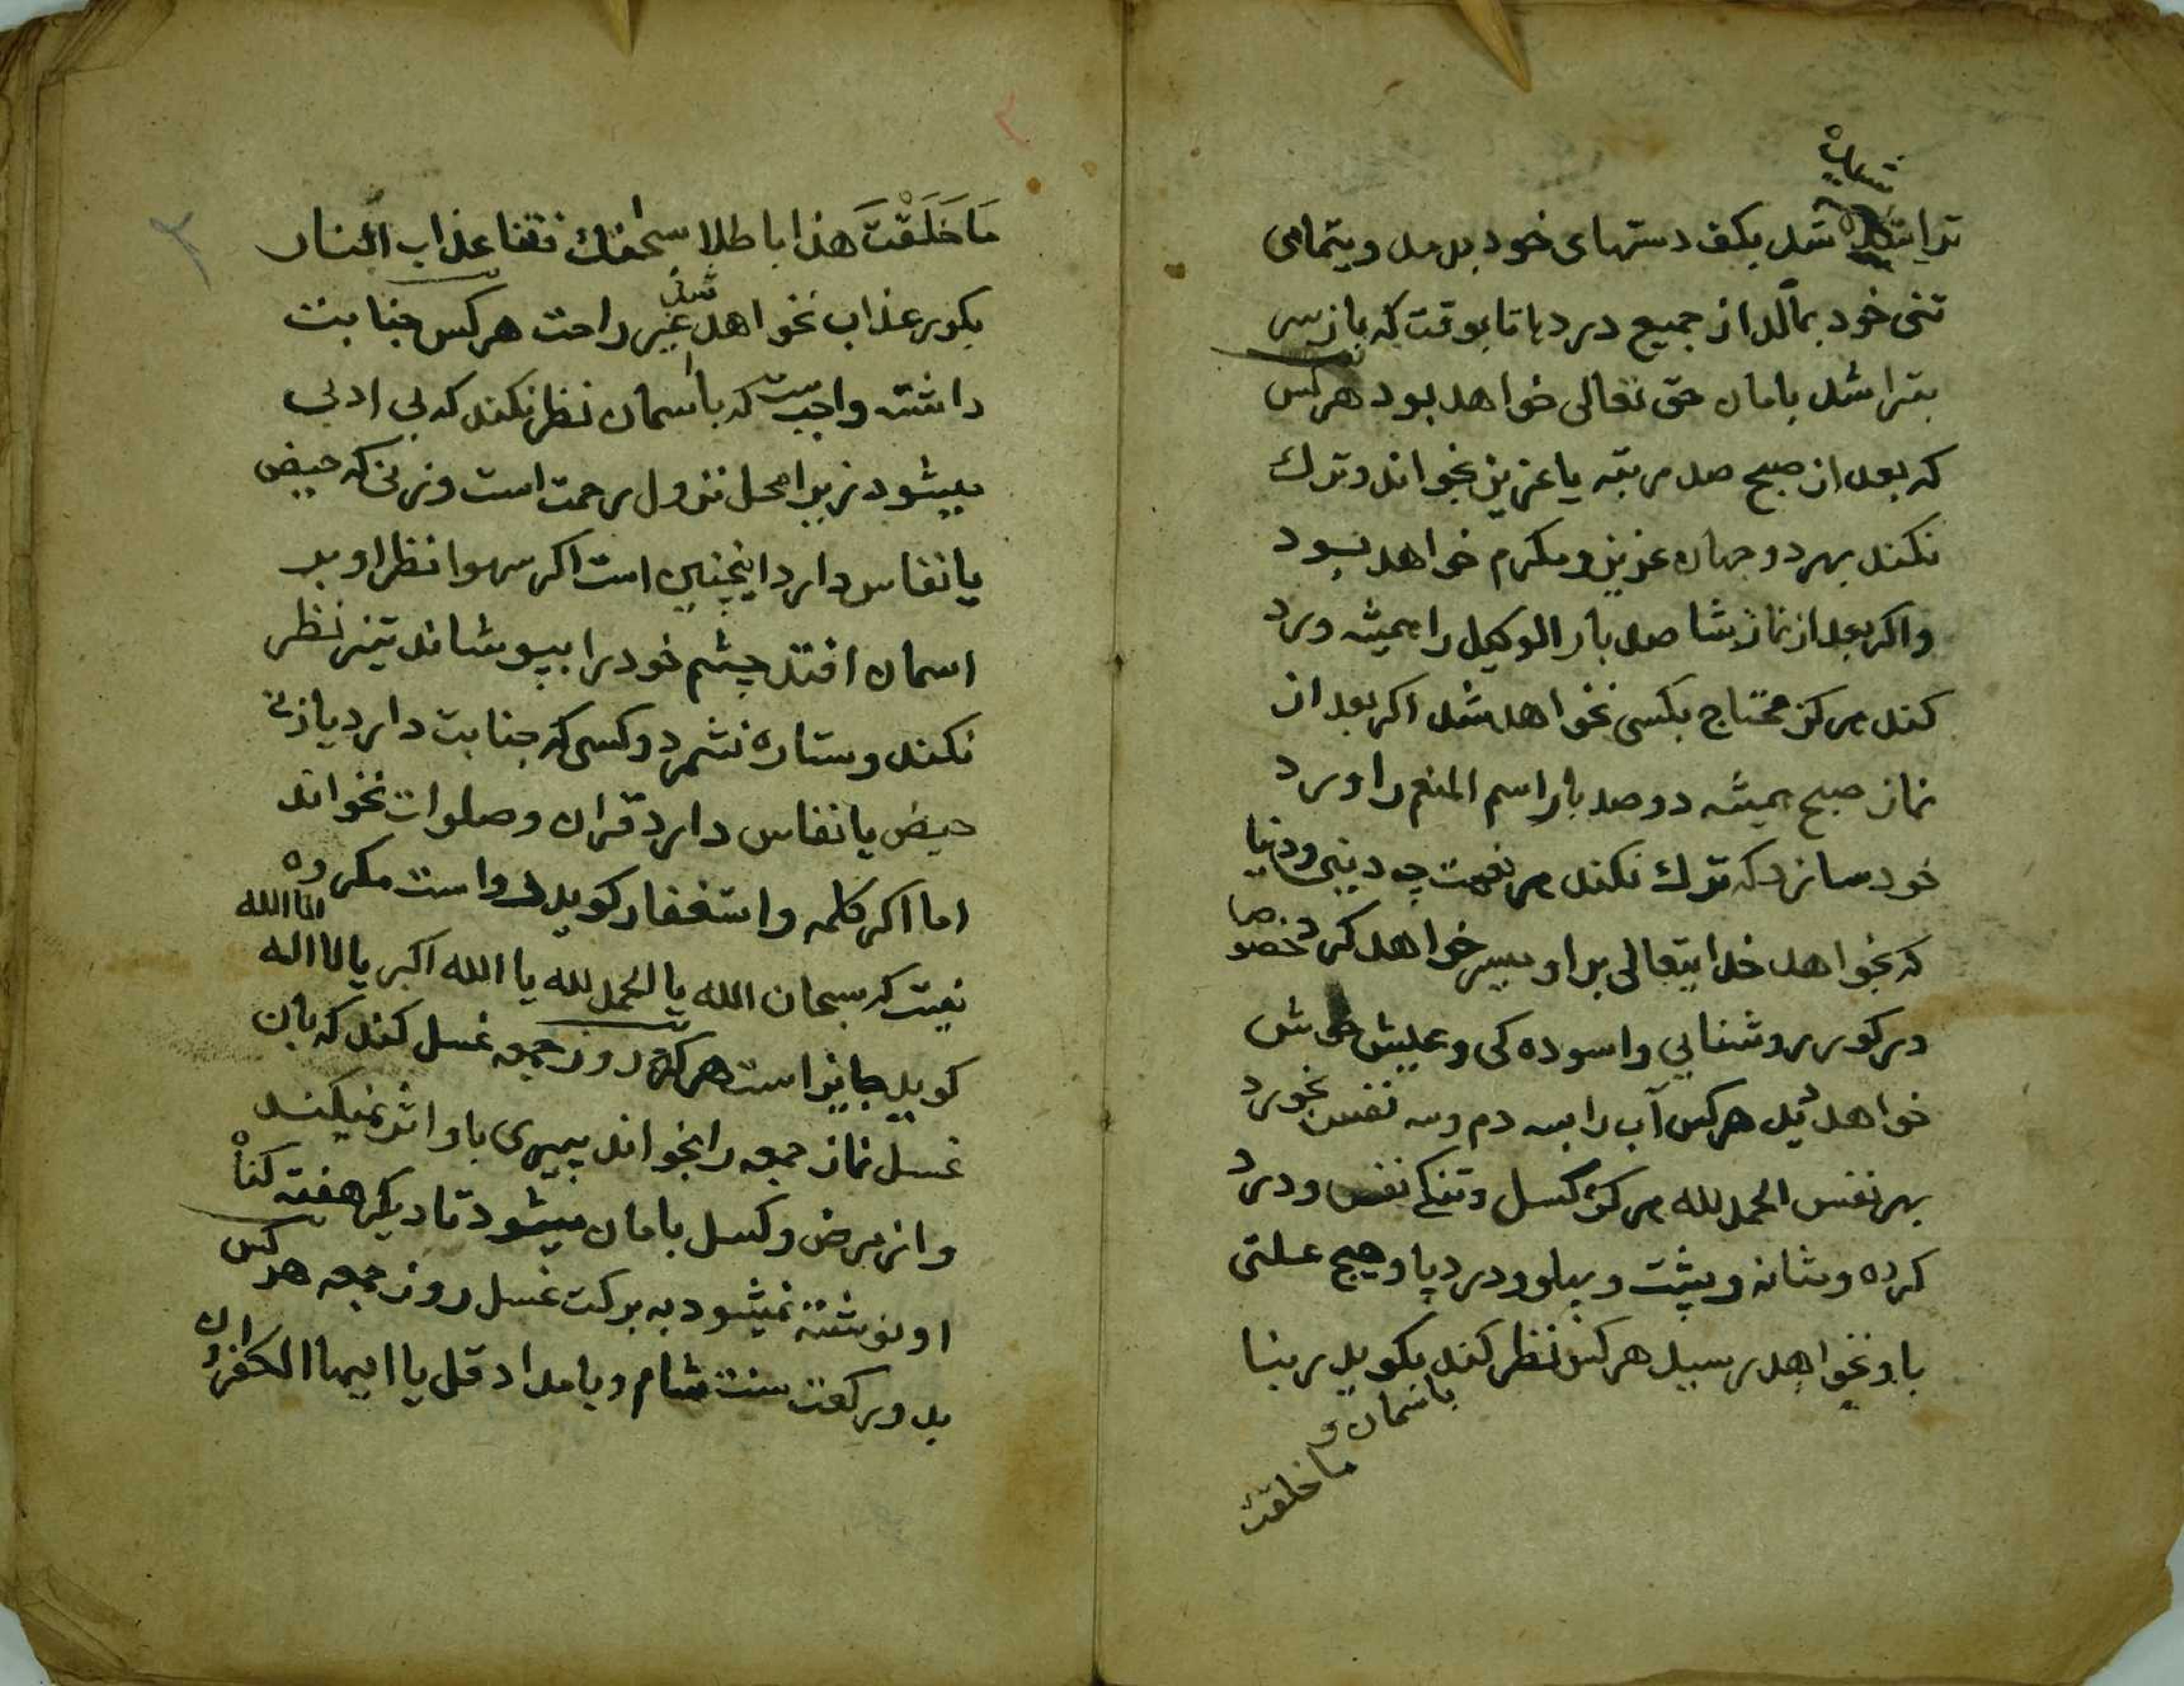 شد بکف دستهای خود بدمد وبتمامی
تنی خود بمالد از جمیع دردها تا بوقت که باز سر
بتراشد بامان حق تعالی خواهد بود هرکس
که بعد از صبح صد مرتبه یا عزیز بخواند وترک
نکند بهر دو جهان عزیز ومکرم خواهد بود
واکر بعد از نماز شا صد بار الوکیل را همیشه ورد
کند هرکز محتاج بکسی نخواهد شد اکر بعد از
نماز صبح همیشه دوصد بار اسم المنعم را ورد
خود سازد که ترک نکند هر نعمت چه دینی ودنیا
که بخواهد خدایتعالی براو میسر خواهد کرد خصوصا
در کور روشنایی واسوده کی وعیش خوش
خواهد دید هرکس آب را بسه دم وسه نفس بخورد
بهر نفس الحمد لله هرکز کسل وتنکی نفس ودرد
کرده وشانه وپشت وپهلو ودرد پا وهیچ علتی
باو نخواهد رسید هرکس نظر کند بکوید ربنا
باسمان و
ما خلقت
مَا خَلَقْتَ هذا باطلا سبحنک فقنا عذاب النار
بکور عذاب نخواهد شد غیر راحت هرکس جنابت
داشته واجب ست که باسمان نظر نکند که بی ادبی
میشود زیرا محل نزول رحمت است وزنی که حیض
یا نفاس دارد اینچنین است اکر سهوا نظر او بر
اسمان افتد چشم خود را بپوشاند تیز نظر
نکند وستاره نشمرد وکسی که جنابت دارد یا زنی
حیض یا نفاس دارد قران وصلوات نخواند
اما اکر کلمه واستغفار کوید رواست مکروه
نیست که سبحان الله یا الحمد لله یا الله اکبر یا لا اله الا الله
کوید جایز است هرکه روز جمعه غسل کند که بان
غسل نماز جمعه را بخواند پیری باو اثر نمیکند
واز مرض وکسل بامان میشود تا دیکر هفته کناه
او نوشته نمیشود به برکت غسل روز جمعه هرکس
بدو رکعت سنت شام وبامداد قل یا ایها الکفرون